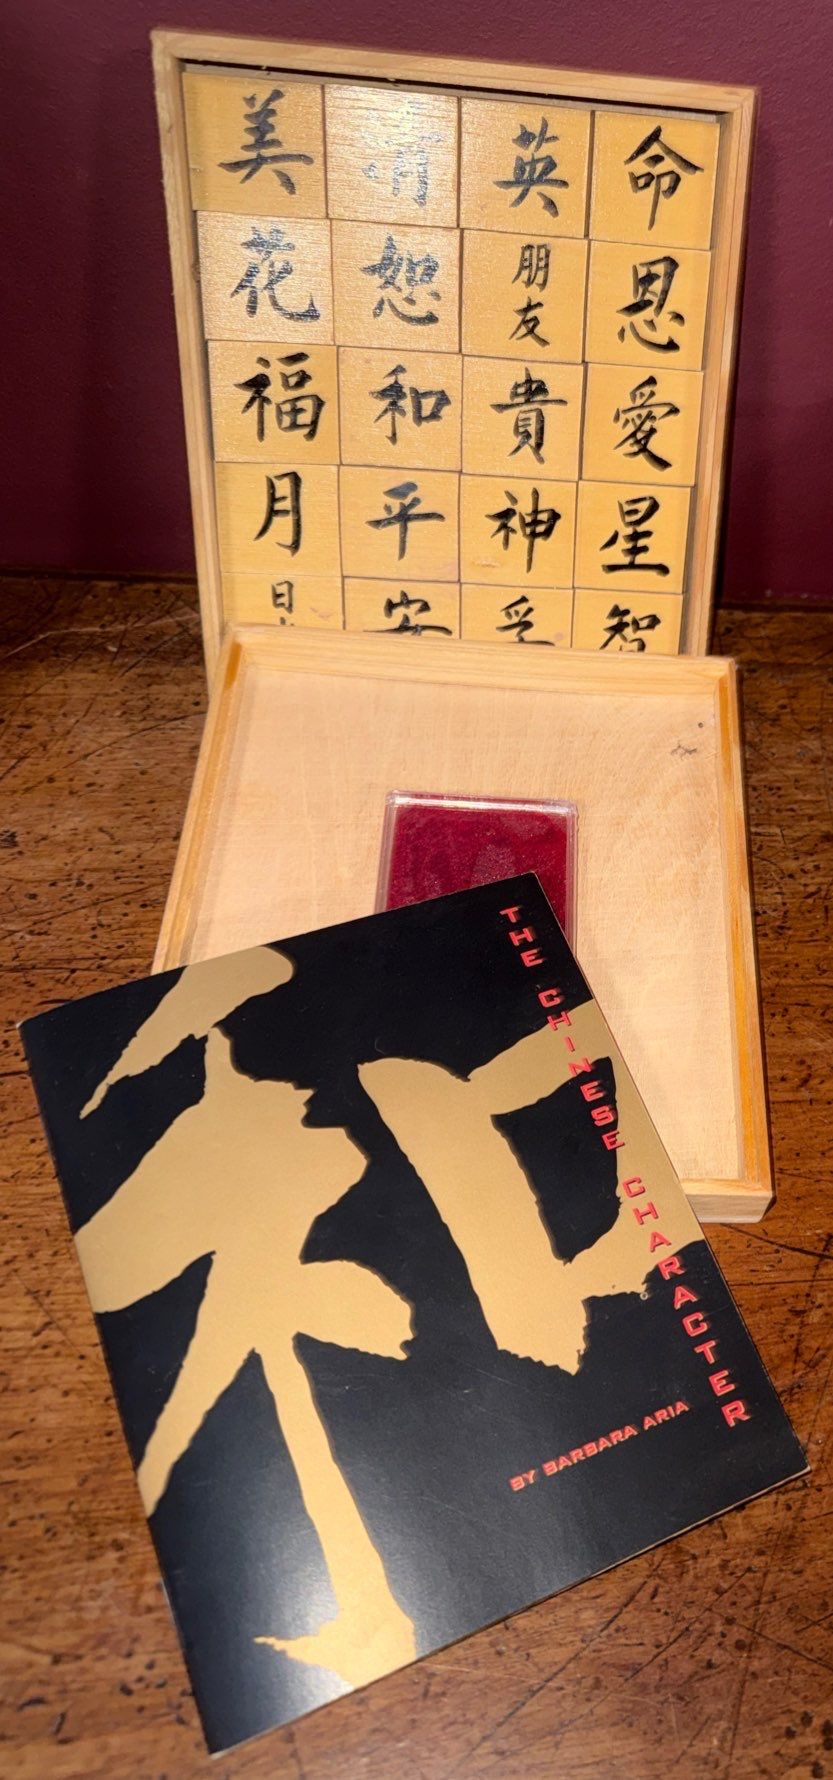 美 英 命
花 恕 朋友 恩
福 和 貴 愛
月 平 神 星
日 安 智
和
THE CHINESE CHARACTER
BY BARBARA ARIA